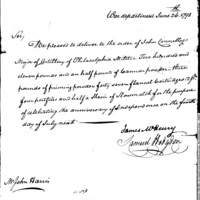 War department June 26th 1798
Sir,
Be pleased to deliver to the order of John Connelly
Major of Artillery of Philadelphia Militia Two hundred and
eleven pounds and an half pound of Cannon powder - three
pounds of priming powder forty seven flannel Cartridges 12 pr
four portfires and half a Skein of Slow match for the purpose
of celebrating the anniversary of Independence on the fourth
day of July next
James McHenry
Samuel Hodgdon
Mr John Harris